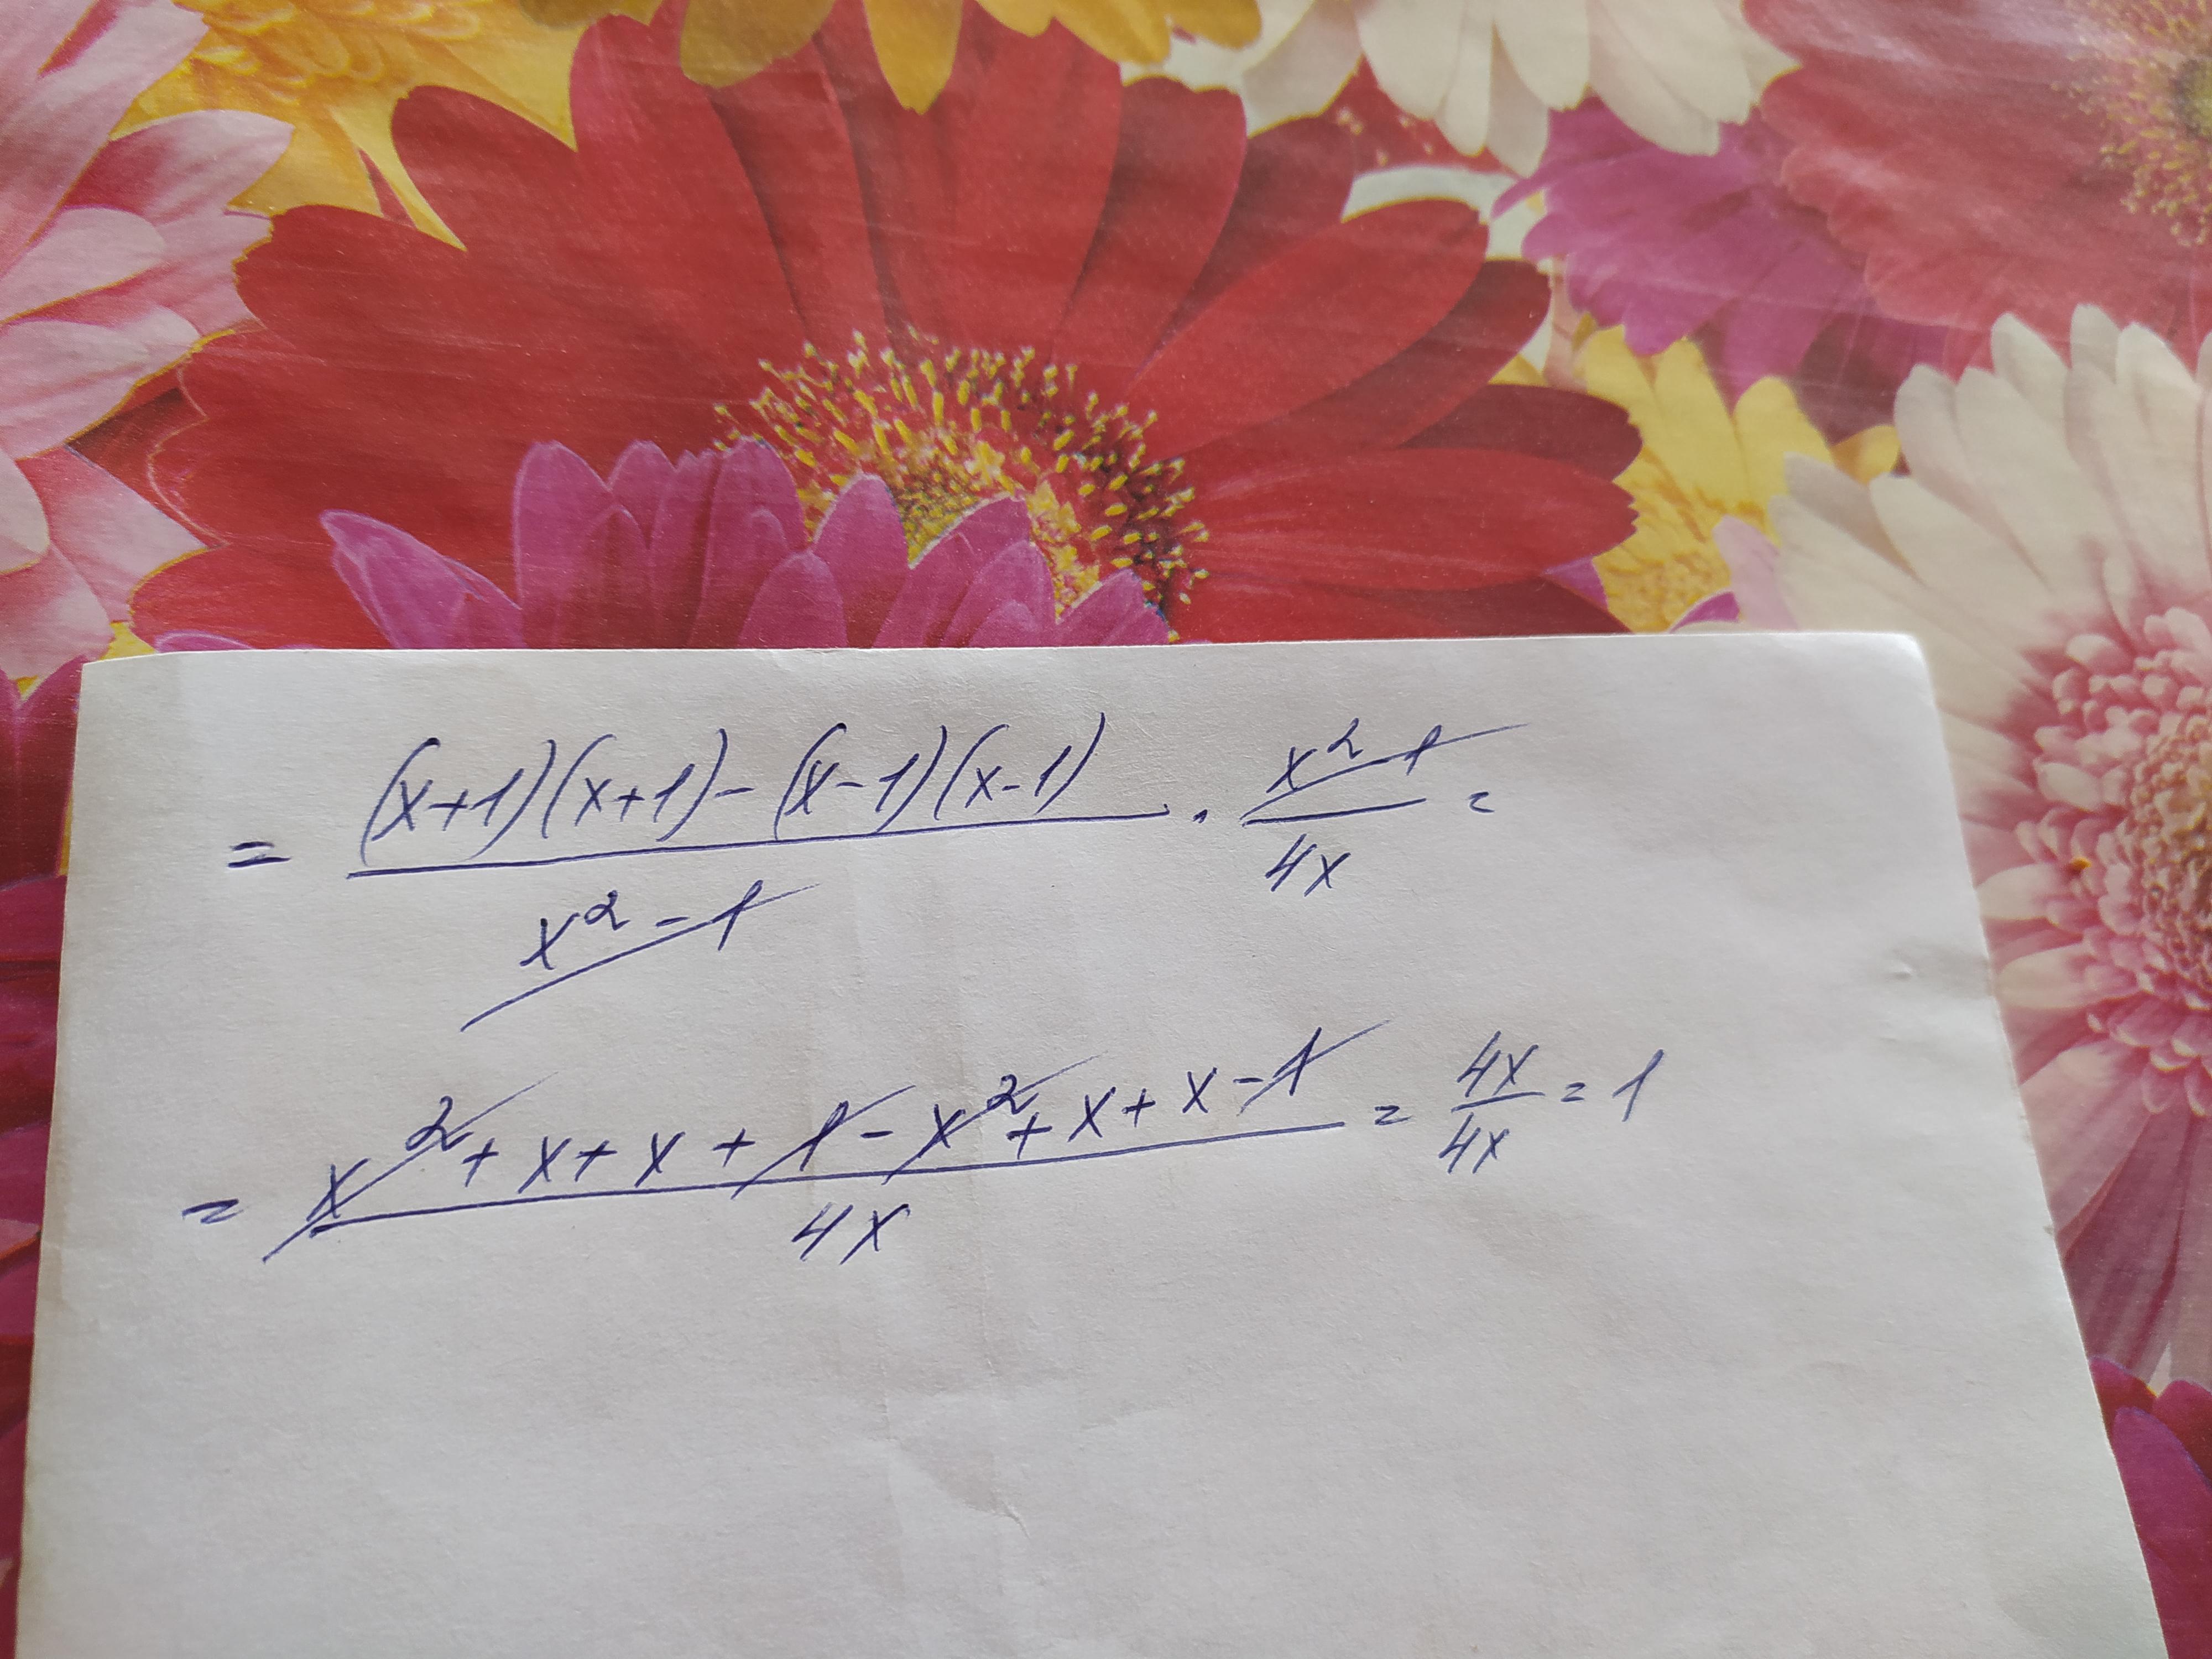 = \frac{(x+1)(x+1) - (x-1)(x-1)}{x² - 1} · \frac{x² - 1}{4x} =
= \frac{x² + x + x + 1 - x² + x + x - 1}{4x} = \frac{4x}{4x} = 1